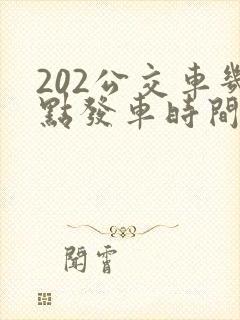 202公交車幾
點發車時間
閱霄